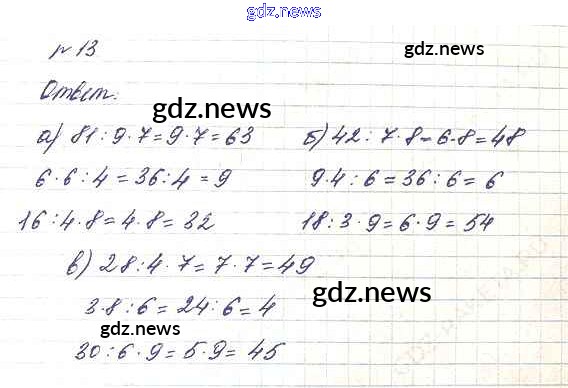 gdz.news
№ 13
gdz.news
Ответ:
gdz.news
а) 81 : 9 · 7 = 9 · 7 = 63
б) 42 : 7 · 8 = 6 · 8 = 48
6 · 6 : 4 = 36 : 4 = 9
9 · 4 : 6 = 36 : 6 = 6
16 : 4 · 8 = 4 · 8 = 32
18 : 3 · 9 = 6 · 9 = 54
в) 28 : 4 · 7 = 7 · 7 = 49
3 · 8 : 6 = 24 : 6 = 4
gdz.news
gdz.news
30 : 6 · 9 = 5 · 9 = 45